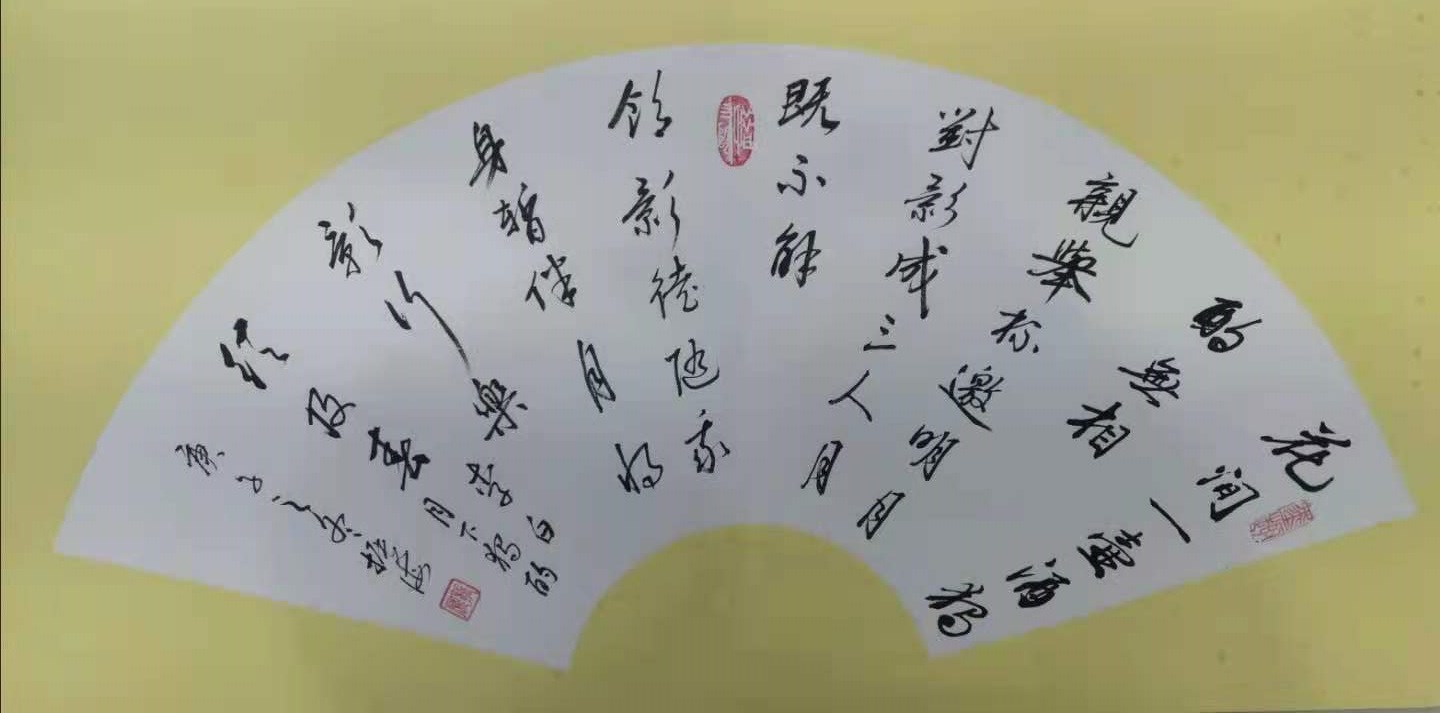 花间一壺酒独
酌無相
親舉杯邀明月
對影成三人月
既不解
飲影徒随我
身暫伴月将
影行樂
须及春
李白
月下独酌
庚子之冬